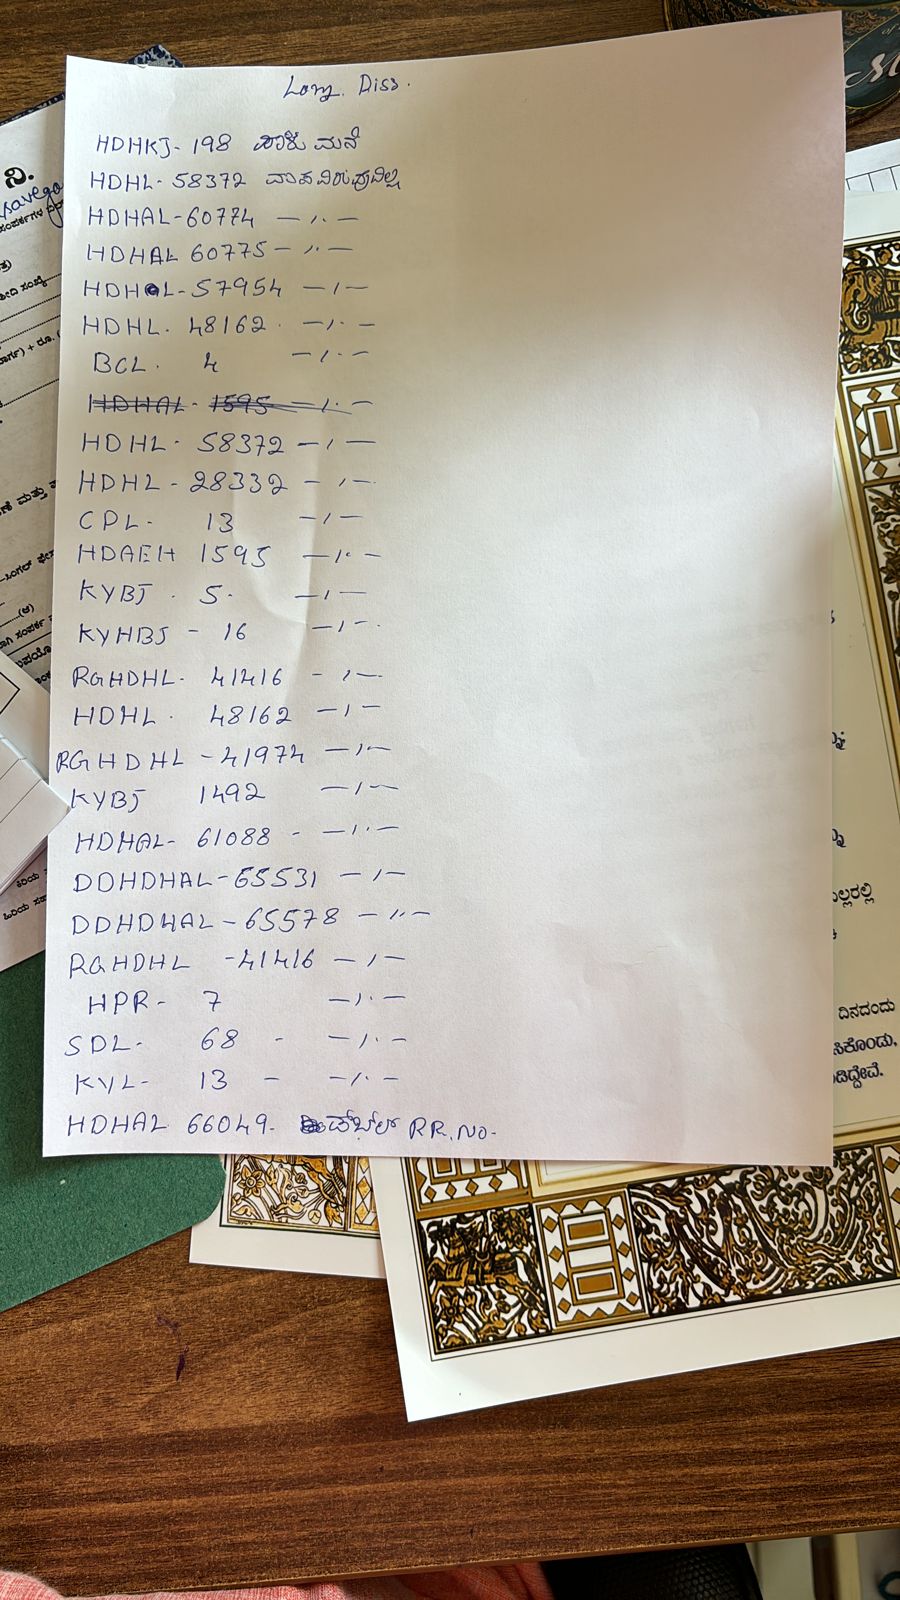 Long Diss.
HDHKJ- 198 ಪಾಳು ಮನೆ
HDHL- 58372 ವಾಸವಿರುವುದಿಲ್ಲ
HDHAL-60774 —〃—
HDHAL 60775 —〃—
HDHAL-57954 —〃—
HDHL. 48162. —〃—
BCL. 4 —〃—
HDHAL- 1595 —〃—
HDHL- 58372 —〃—
HDHL- 28332 —〃—
CPL- 13 —〃—
HDAEH 1595 —〃—
KYBJ. 5. —〃—
KYHBJ- 16 —〃—
RGHDHL- 41416 —〃—
HDHL. 48162 —〃—
RGHDHL -41974 —〃—
KYBJ 1492 —〃—
HDHAL- 61088 - —〃—
DDHDHAL-65531 —〃—
DDHDHAL-65578 —〃—
RGHDHL -41416 —〃—
HPR- 7 —〃—
SDL- 68 - —〃—
KYL- 13 - —〃—
HDHAL 66049. ಡಬಲ್ RR.No-
ನಿ.
ದಿನದಂದು